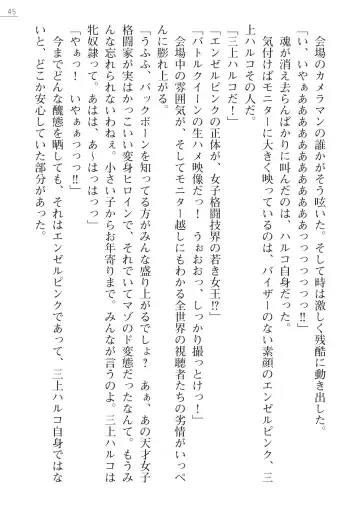 45
会場のカメラマンの誰かがそう呟いた。そして時は激しく残酷に動き出した。
「い、いやぁあああああああああああああああっっっっっっっ!!」
魂が消え去らんばかりに叫んだのは、ハルコ自身だった。
気付けばモニターに大きく映っているのは、バイザーのない素顔のエンゼルピンク、三
上ハルコその人だ。
「三上ハルコだ！」
「エンゼルピンクの正体が、女子格闘技界の若き女王!?」
「バトルクイーンの生ハメ映像だっ！　うぉおおっ、しっかり撮っとけっ！」
会場中の雰囲気が、そしてモニター越しにもわかる全世界の視聴者たちの劣情がいっぺ
んに膨れ上がる。
「うふふ、バックボーンを知ってる方がみんな盛り上がるでしょ？　あぁ、あの天才女子
格闘家が実はかっこいい変身ヒロインで、それでいてマゾのド変態だったなんて。もうみ
んな忘れられないわねぇ。小さい子からお年寄りまで。みんなが言うのよ。三上ハルコは
牝奴隷って。あはは、あ～はっはっはっ」
「やぁっ！　いやぁぁっっっ!!」
今までどんな醜態を晒しても、それはエンゼルピンクであって、三上ハルコ自身ではな
いと、どこか安心していた部分があった。